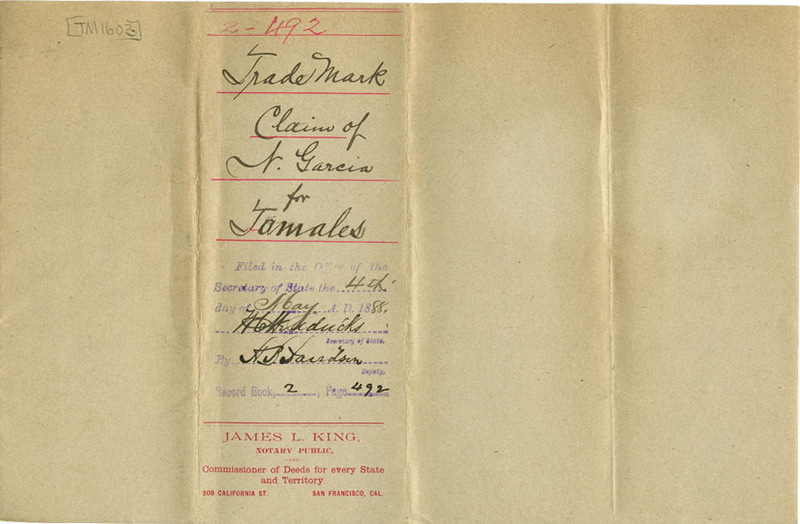 [TM1603]
2-492
Trade Mark
Claim of
N. Garcia
for
Tamales
Filed in the Office of the
Secretary of State the 4th
day of May A. D. 1888.
Secretary of State.
By
Deputy.
Record Book 2, Page 492
JAMES L. KING,
NOTARY PUBLIC,
AND
Commissioner of Deeds for every State
and Territory.
308 CALIFORNIA ST. SAN FRANCISCO, CAL.